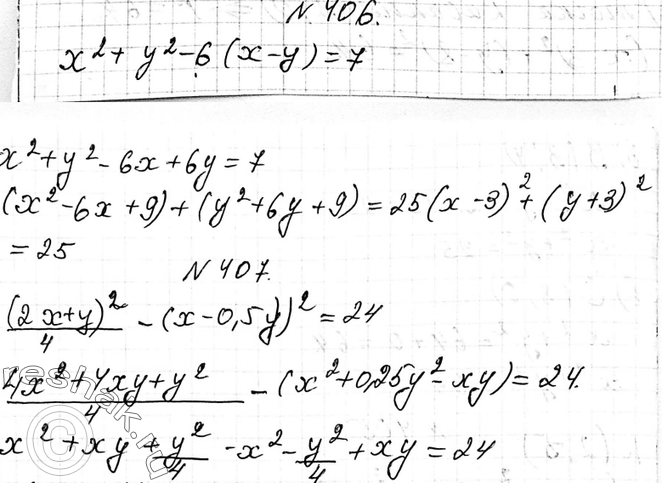 N 406.
x² + y² - 6(x - y) = 7
x² + y² - 6x + 6y = 7
(x² - 6x + 9) + (y² + 6y + 9) = 25(x - 3)² + (y + 3)²
= 25
N 407.
(2x + y)²/4 - (x - 0,5y)² = 24
(4x² + 4xy + y²)/4 - (x² + 0,25y² - xy) = 24.
x² + xy + y²/4 - x² - y²/4 + xy = 24
reshak.ru